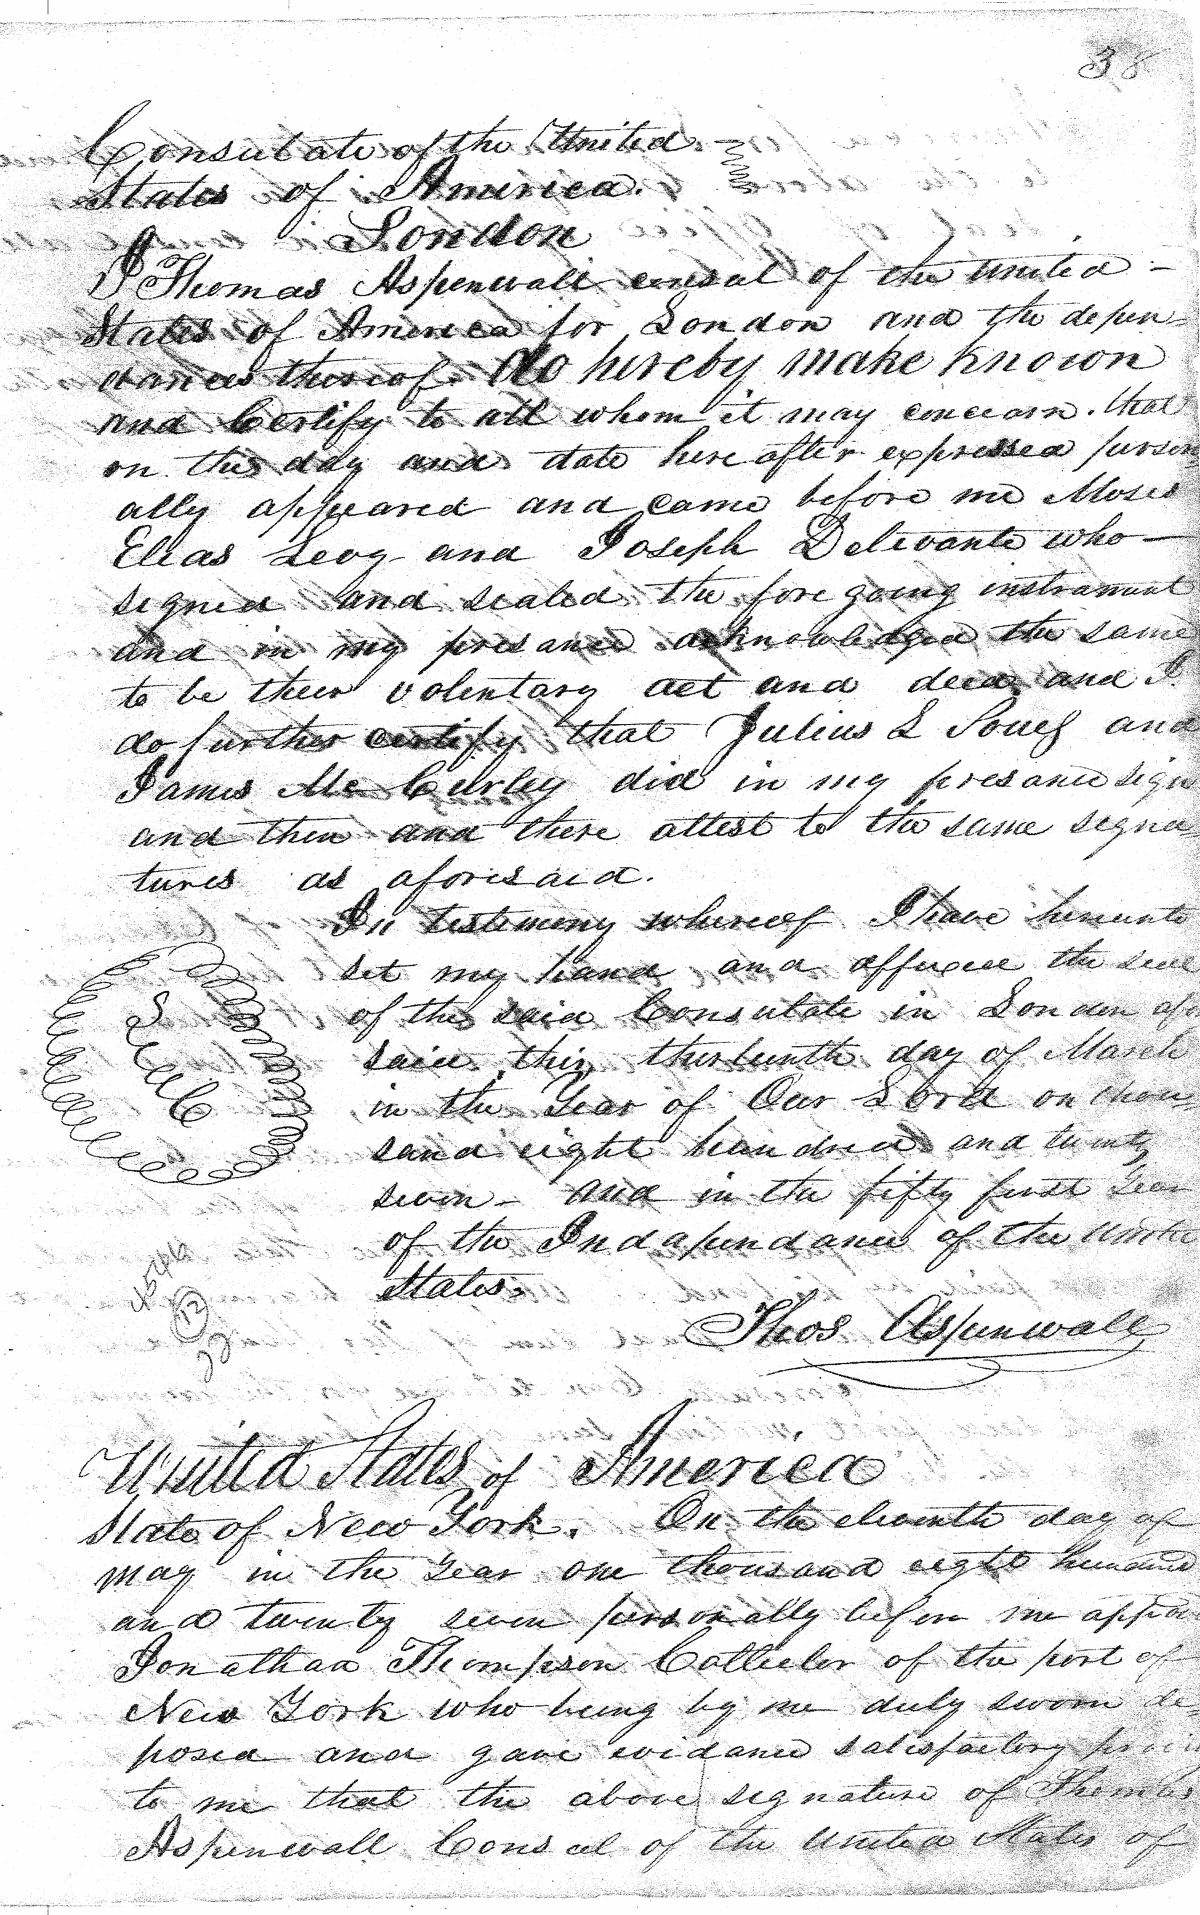 38
Consulate of the United
States of America.
London
I Thomas Aspenwall consul of the united –
States of America for London and the depen=
dancies thereof. do hereby make known
and Certify to all whom it may concern. that
on the day and date hereafter expressed person=
ally appeared and came before me Moses
Elias Levy and Joseph Delevante who –
signed and sealed the foregoing instrument
and in my presance acknowledged the same
to be their volentary act and deed, and I
do further certify that Julius L and
James Mc Curley did in my presance sign
and then and there attest to the same signa=
tures as aforesaid.
In testimony whereof I have hereunto
set my hand and affixed the seal
of the said Consulate in London afore
said, this thirteenth day of March
in the Year of Our Lord on thou=
sand eight hundred and twenty
seven – and in the fifty first Year
of the Indapendance of the United
States.
Seal
12
22
Thos Aspenwall
United States of America
State of New York. On the eleventh day of
may in the Year one thousand eight hundred
and twenty seven personally before me appear
Jonathan Thompson Collector of the port of
New York who being by me duly sworn de=
posed and gave evidance satisfactory
to me that the above signature of Thomas
Aspenwall Consul of the United States of